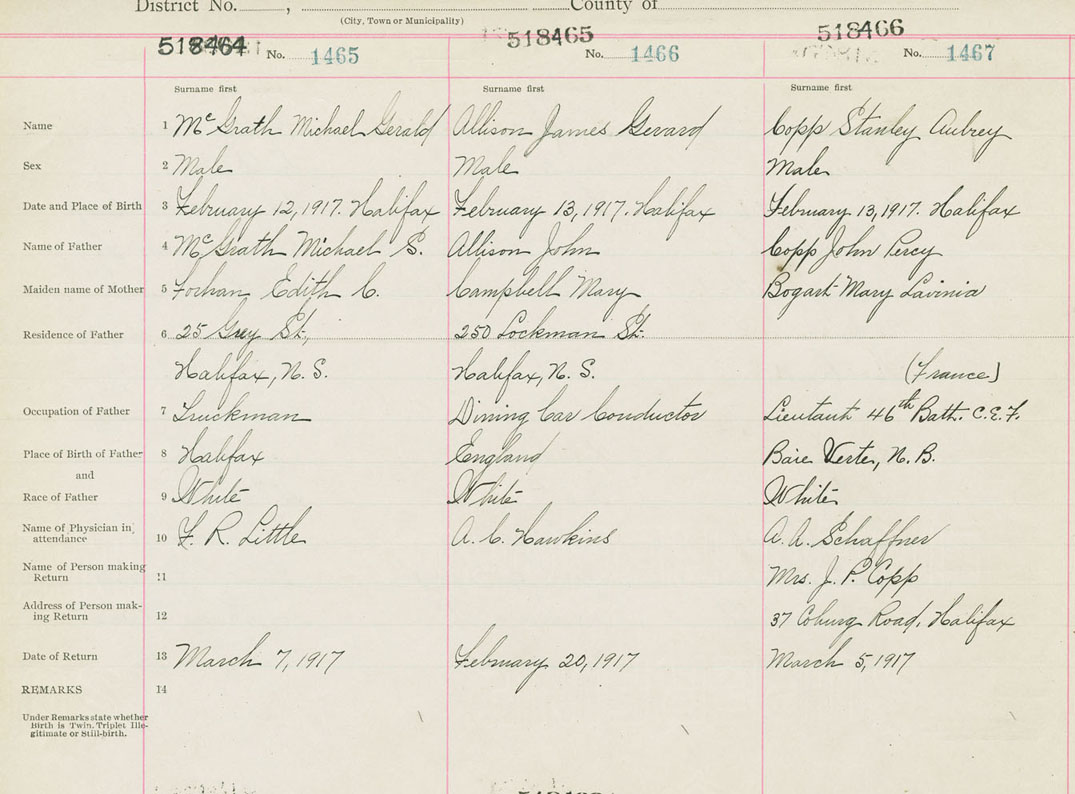 District No. , County of
(City, Town or Municipality)
518464 518465 518466
No. 1465 No. 1466 No. 1467
Surname first Surname first Surname first
Name 1 McGrath Michael Gerald Allison James Gerard Copp Stanley Aubrey
Sex 2 Male Male Male
Date and Place of Birth 3 February 12, 1917. Halifax February 13, 1917. Halifax February 13, 1917. Halifax
Name of Father 4 McGrath Michael S. Allison John Copp John Percy
Maiden name of Mother 5 Forhan Edith C. Campbell Mary Bogart Mary Lavinia
Residence of Father 6 25 Guy St., 250 Lockman St.
Halifax, N.S. Halifax, N.S. (France)
Occupation of Father 7 Truckman Dining Car Conductor Lieutant 46th Batt. C.E.F.
Place of Birth of Father 8 Halifax England Baie Verte, N.B.
and
Race of Father 9 White White White
Name of Physician in attendance 10 F. R. Little A. C. Hawkins A. A. Schaffner
Name of Person making Return 11 Mrs. J. P. Copp
Address of Person making Return 12 37 Coburg Road, Halifax
Date of Return 13 March 7, 1917 February 20, 1917 March 5, 1917
REMARKS 14
Under Remarks state whether
Birth is Twin, Triplet Ille-
gitimate or Still-birth.